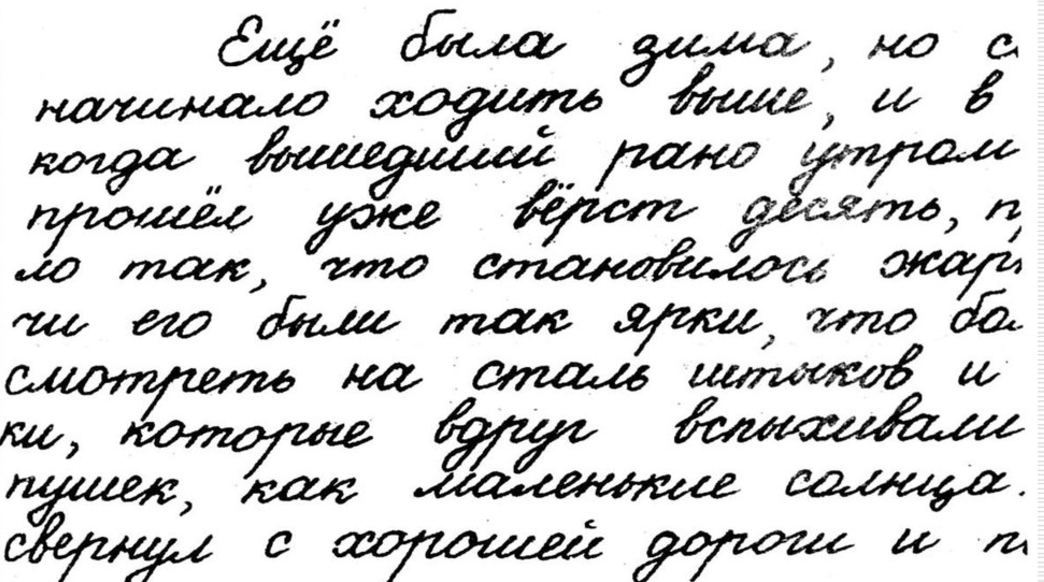 Ещё была зима, но с
начинало ходить выше, и в
когда вышедший рано утром
прошёл уже вёрст десять, п
ло так, что становилось жар
чи его были так ярки, что бо
смотреть на сталь штыков и
ки, которые вдруг вспыхивали
пушек, как маленькие солнца.
свернул с хорошей дороги и п